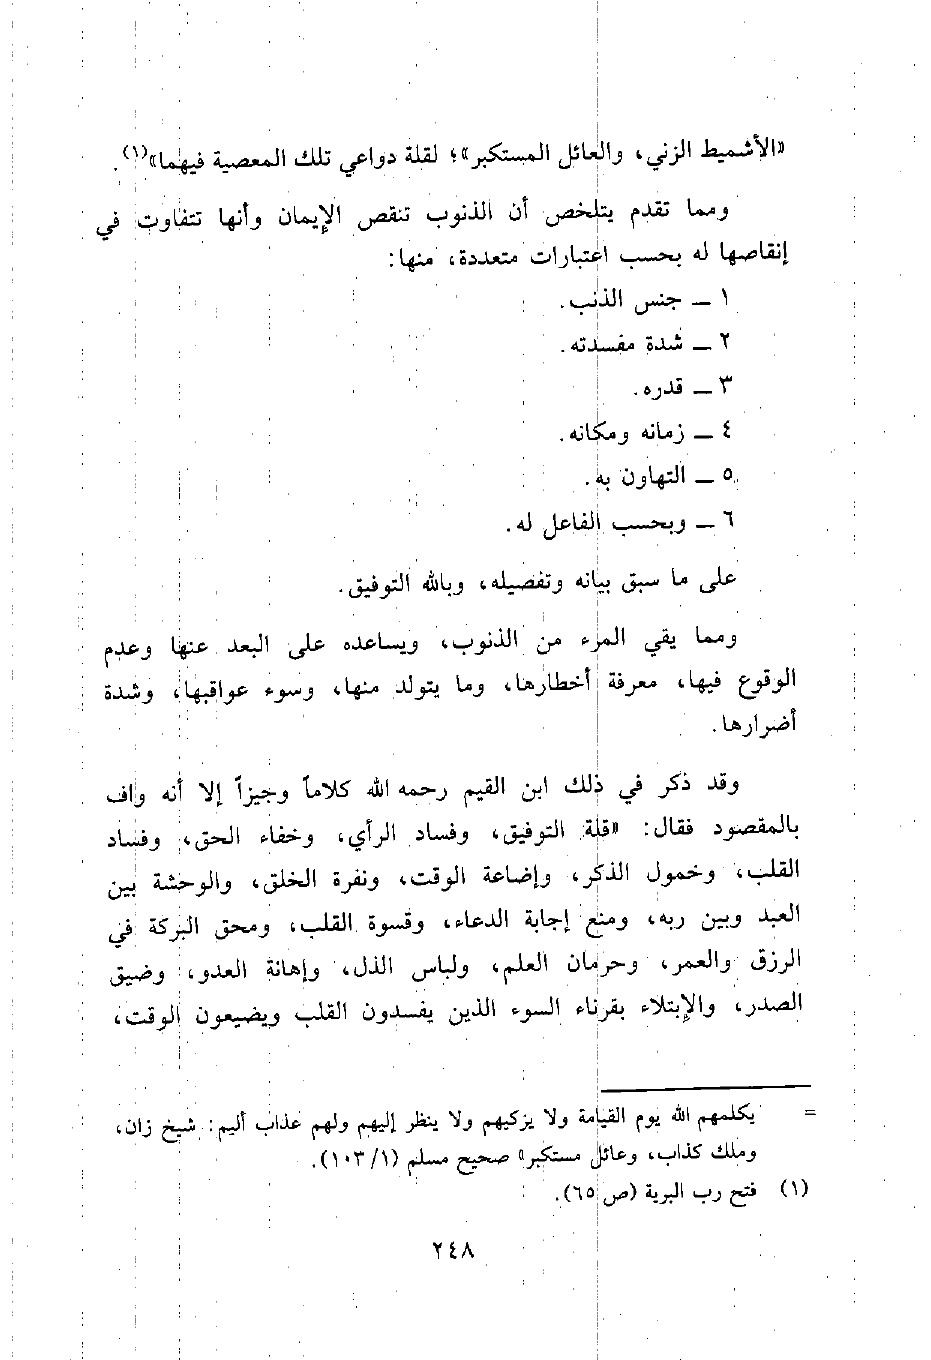 «الأشميط الزني، والعائل المستكبر»؛ لقلة دواعي تلك المعصية فيهما»(١).
ومما تقدم يتلخص أن الذنوب تنقص الإيمان وأنها تتفاوت في
إنقاصها له بحسب اعتبارات متعددة، منها:
١ ـ جنس الذنب.
٢ ـ شدة مفسدته.
٣ ـ قدره.
٤ ـ زمانه ومكانه.
٥ ـ التهاون به.
٦ ـ وبحسب الفاعل له.
على ما سبق بيانه وتفصيله، وبالله التوفيق.
ومما يقي المرء من الذنوب، ويساعده على البعد عنها وعدم
الوقوع فيها، معرفة أخطارها، وما يتولد منها، وسوء عواقبها، وشدة
أضرارها.
وقد ذكر في ذلك ابن القيم رحمه الله كلاماً وجيزاً إلا أنه واف
بالمقصود فقال: «قلة التوفيق، وفساد الرأي، وخفاء الحق، وفساد
القلب، وخمول الذكر، وإضاعة الوقت، ونفرة الخلق، والوحشة بين
العبد وبين ربه، ومنع إجابة الدعاء، وقسوة القلب، ومحق البركة في
الرزق والعمر، وحرمان العلم، ولباس الذل، وإهانة العدو، وضيق
الصدر، والإبتلاء بقرناء السوء الذين يفسدون القلب ويضيعون الوقت،
= يكلمهم الله يوم القيامة ولا يزكيهم ولا ينظر إليهم ولهم عذاب أليم: شيخ زان،
وملك كذاب، وعائل مستكبر» صحيح مسلم (١٠٣/١).
(١) فتح رب البرية (ص ٦٥).
٢٤٨